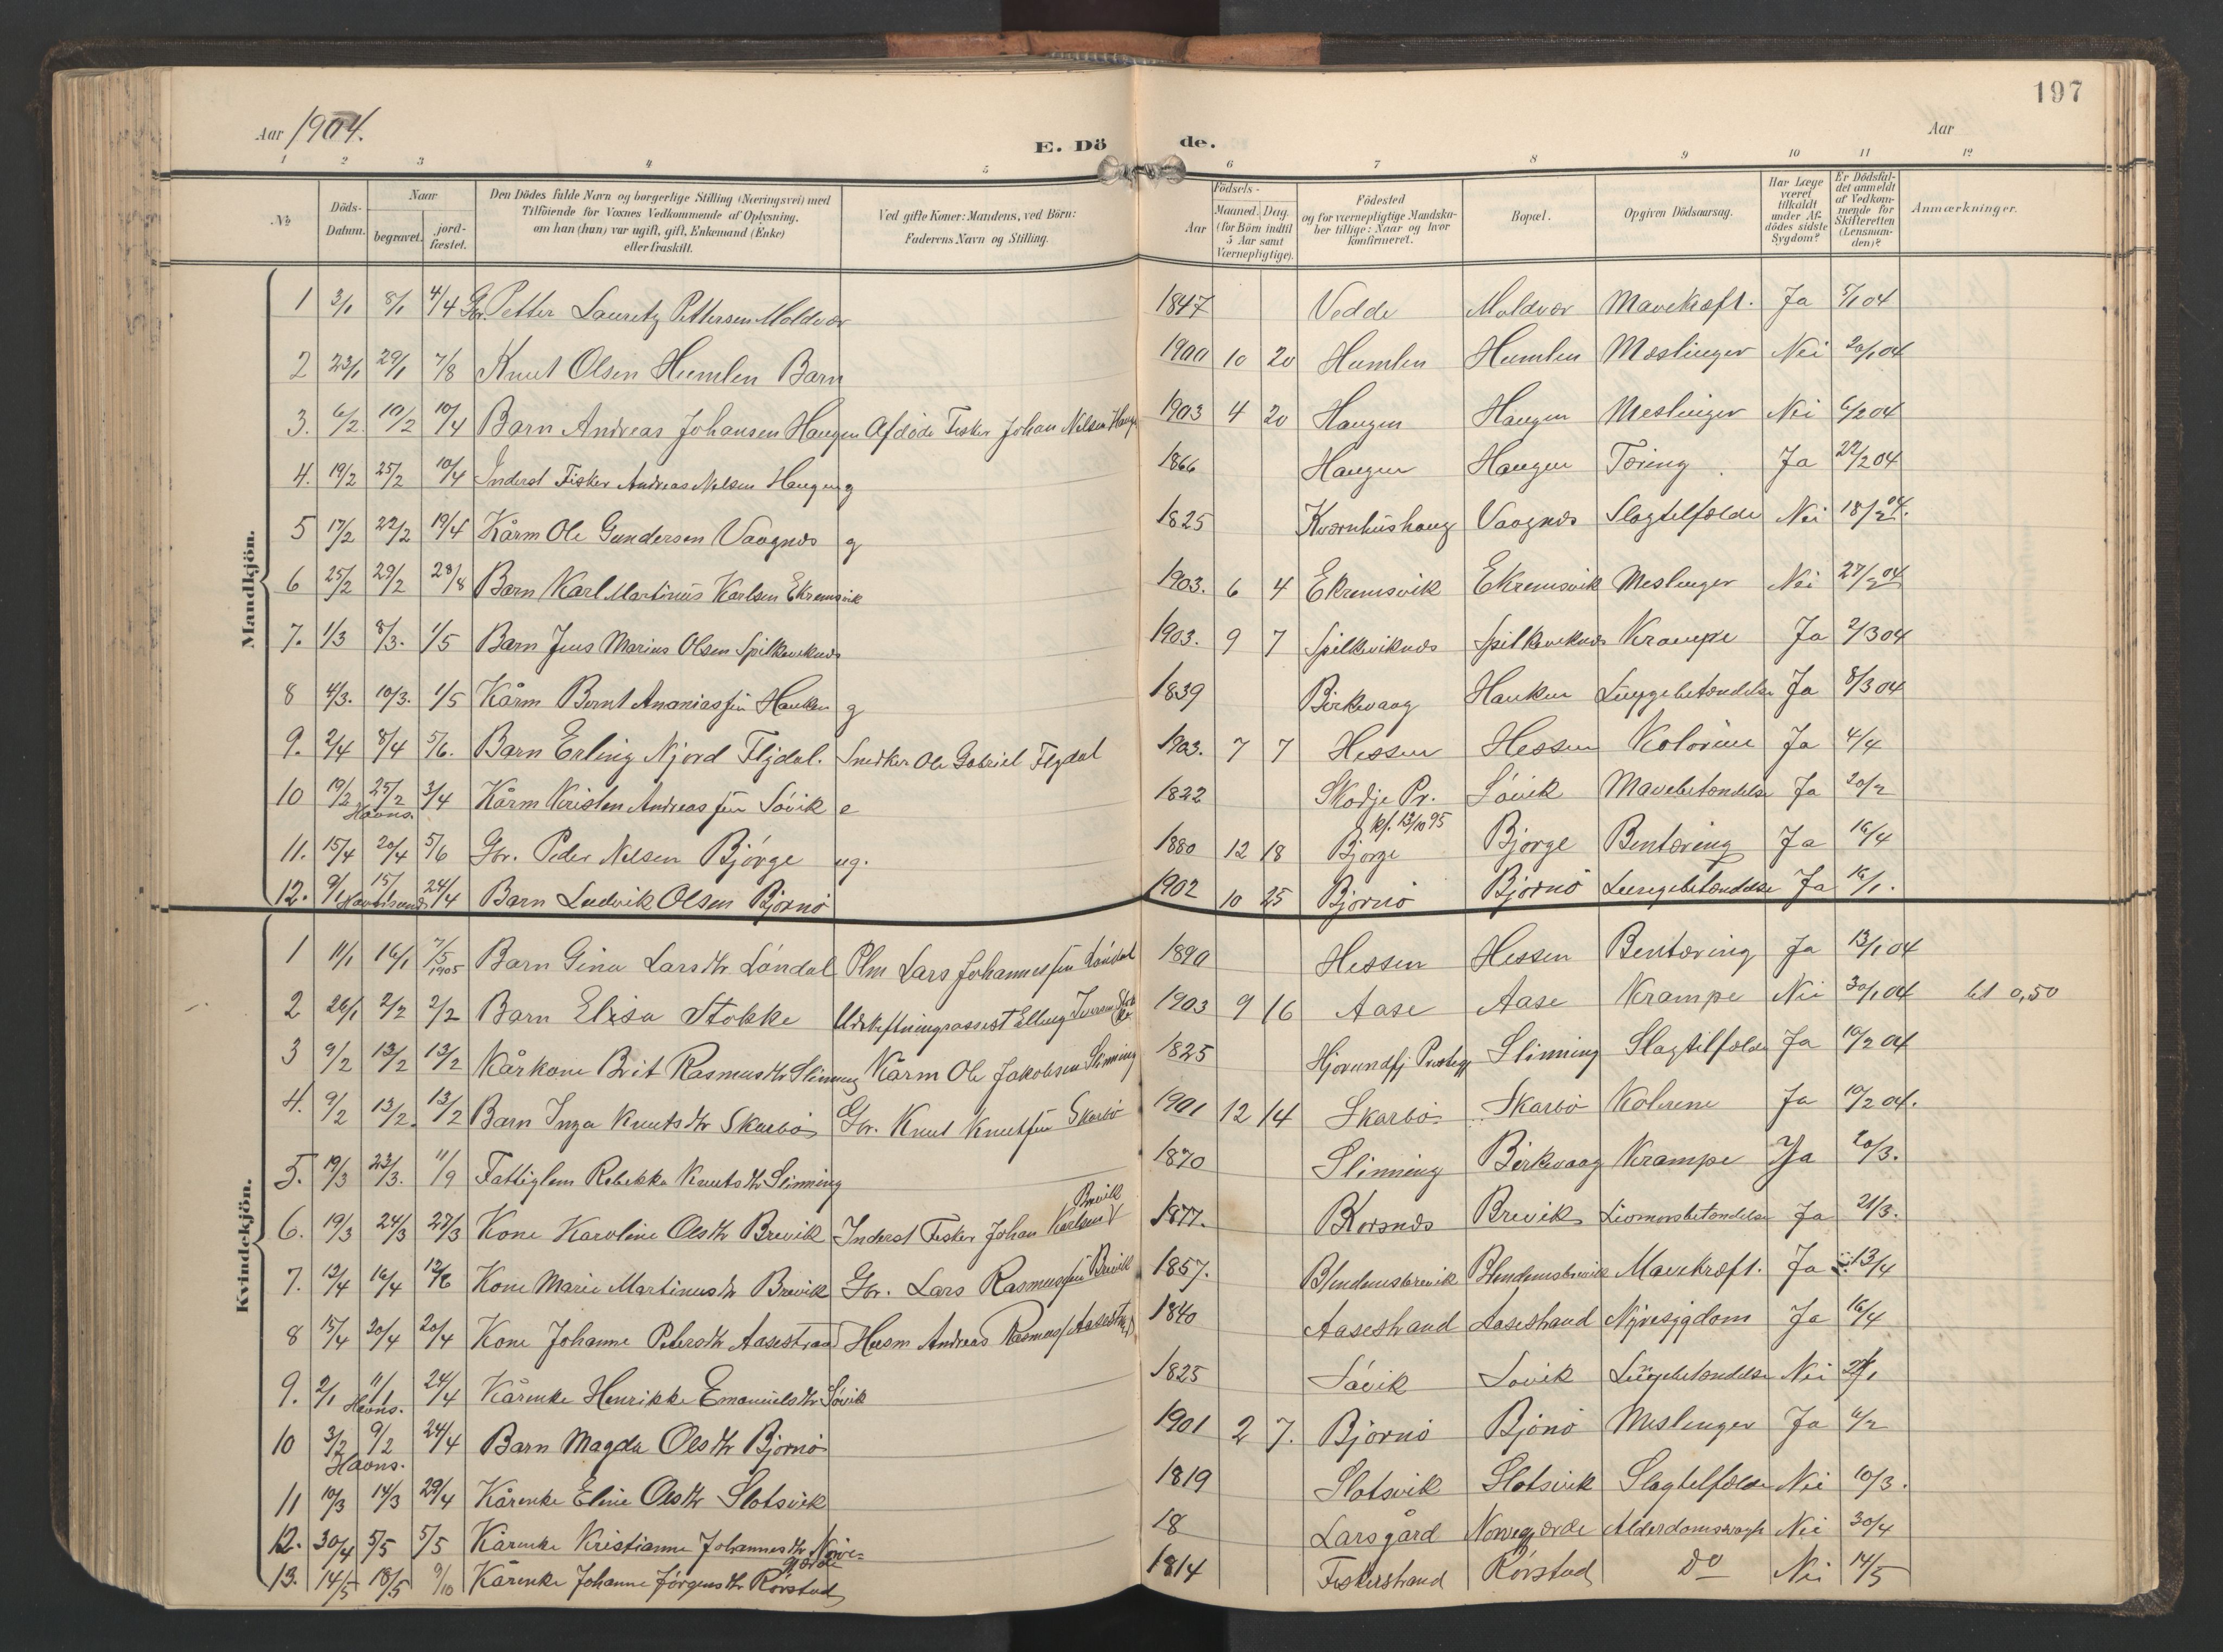 197
Aar 1904.
E. Döde.
Aar
1 2 3 4 5 6 7 8 9 10 11 12
No
Döds-Datum.
Naar
begravet.
jord-fæstet.
Den Dödes fulde Navn og borgerlige Stilling (Næringsvei) med Tilföiende for Voxnes Vedkommende af Oplysning, om han (hun) var ugift, gift, Enkemand (Enke) eller fraskilt.
Ved gifte Koner: Mandens, ved Börn: Faderens Navn og Stilling.
Födsels-
Aar
Maaned. Dag. (for Börn indtil 5 Aar samt Værnepligtige).
Födested og for værnepligtige Mandskaber tillige: Naar og hvor konfirmeret.
Bopæl.
Opgiven Dödsaarsag.
Har Læge været tilkaldt under Afdödes sidste Sygdom?
Er Dödsfaldet anmeldt af Vedkommende for Skifteretten (Lensmanden)?
Anmærkninger.
Mandkjön.
1 3/1 8/1 4/4 Gbr. Petter Lauretz Pettersen Moldvær 1847 Vedde Moldvær Mavekræft. Ja 5/1 04
2 23/1 29/1 7/8 Knut Olsen Humlen Barn 1900 10 20 Humlen Humlen Mæslinger Nei 29/1 04
3. 6/2 10/2 10/4 Barn Andreas Johansen Haugen Afdöde Fisker Johan Nilsen Haugen 1903 4 20 Haugen Haugen Meslinger Nei 6/2 04
4. 19/2 25/2 10/4 Inderst Fisker Andreas Nilsen Haugen g 1866 Haugen Haugen Tæring Ja 22/2 04
5 17/2 22/2 19/4 Kårm Ole Gundersen Vaagnes g 1825 Kværnhushaug Vaagnes Slagtilfælde Nei 18/2 04.
6 25/2 29/2 28/8 Barn Karl Martinus Karlsen Ekremsvik 1903. 6 4 Ekremsvik Ekremsvik Meslinger Nei 27/2 04
7. 1/3 8/3. 1/5 Barn Jens Marius Olsen Spilkeviknes 1903. 9 7 Spilkeviknes Spilkeviknes Krampe Ja 2/3 04
8 4/3. 10/3. 1/5 Kårm Bernt Ananiassen Hauken g 1839 Birkevaag Hauken Lungebetændelse Ja 8/3 04
9. 2/4 8/4 5/6. Barn Erling Njord Flydal. Snedker Ole Gabriel Flydal 1903. 7 7 Hessen Hessen Kolorine Ja 4/4
10 19/2 25/2 Havns. 3/4 Kårm Kristen Andreassen Sövik e 1822 Skodje Pr. Sövik Mavebetændelse Ja 20/2
11. 15/4 20/4 5/6 Gbr. Peder Nilsen Björge ug. 1880 12 18 Björge kf. 13/10 95 Björge Bentæring Ja 16/4
12. 9/1 15/1 24/4 Barn Ludvik Olsen Björnö 1902 10 25 Björnö Björnö Lungebetændelse Ja 16/1.
Kvindekjön.
1 11/1 16/1 7/5 1905 Barn Gina Larsdtr Löndal Plm Lars Johannessen Löndal 1890 Hessen Hessen Bentæring Ja 13/1 04
2 26/1 2/2 2/2 Barn Elisa Stokke Udskiftningsassist Elling Iversen Stokke 1903 9 16 Aase Aase Krampe Nei 30/1 04 bt 0,50
3 9/2 13/2 13/2 Kårkone Brit Rasmusdtr Slinning Kårm Ole Jakobsen Slinning 1825 Hjörundfj Prestegj Slinning Slagtilfælde Ja 10/2 04
4. 9/2 13/2. 13/2 Barn Inga Knutsdtr Skarbö Gbr. Knut Knutsen Skarbö 1901 12 14 Skarbö Skarbö Kolerine Ja 10/2 04.
5. 19/3 23/3. 11/9 Fattiglem Rebekka Knutsdtr Slinning 1870 Slinning Birkevaag Krampe Ja 20/3.
6. 19/3 24/3 27/3 Kone Karoline Olsdtr Brevik Inderst Fisker Johan Karlsen Brevik 1877. Korsnes Brevik Livmorsbetændelse Ja 21/3.
7. 12/4 16/4 12/6 Kone Marie Martinusdtr Brevik Gbr. Lars Rasmussen Brevik 1857. Blindemsbrevik Blindemsbrevik Mavekræft. Ja 13/4
8 15/4 20/4 20/4 Kone Johanne Petersdtr Aasestrand Husm Andreas Rasmuss Aasestrand 1840 Aasestrand Aasestrand Nyresygdom Ja 16/4
9. 2/1 11/1 Havns. 24/4 Kårenke Henrikke Emanuelsdtr Sövik 1825 Sövik Sövik Lungebetændelse Nei
10 3/2 9/2 Havns. 24/4 Barn Magda Olsdtr Björnö 1901 2 7. Björnö Björnö Meslinger Ja 6/2
11 10/3 14/3 29/4 Kårenke Eline Olsdtr Slotsvik 1819 Slotsvik Slotsvik Slagtilfælde Nei 10/3.
12. 30/4 5/5 5/5 Kårenke Kristianne Johannesdtr Norvegjærde 18 Larsgård Norvegjærde Alderdomssvagh Nei 30/4
13. 14/5 18/5 9/10 Kårenke Johanne Jörgensdtr Rörstad 1814 Fiskerstrand Rörstad Do Nei 14/5